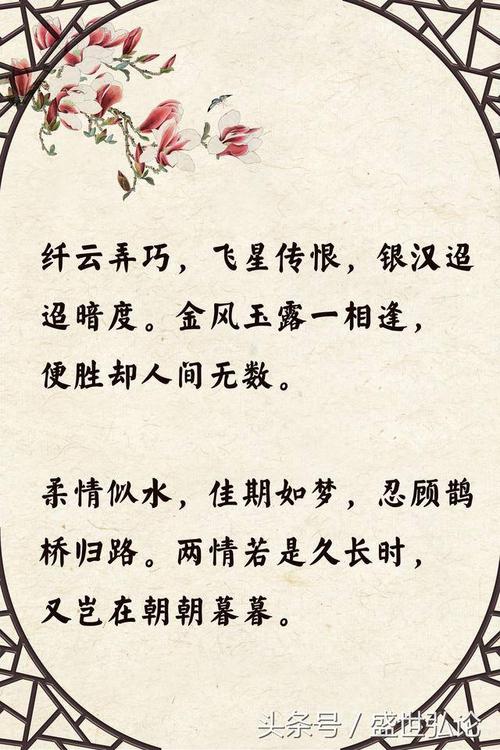 纤云弄巧，飞星传恨，银汉迢
迢暗度。金风玉露一相逢，
便胜却人间无数。
柔情似水，佳期如梦，忍顾鹊
桥归路。两情若是久长时，
又岂在朝朝暮暮。
头条号／盛世弘论